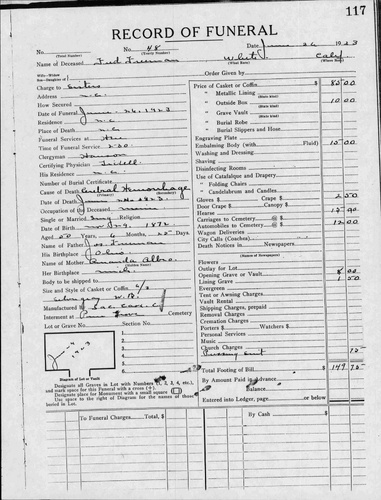 117
RECORD OF FUNERAL
No. No. 48 Date June 26 1923
(Total Number) (Yearly Number)
Name of Deceased Fred Truman White Calif
(What Race) (Where Born)
Order Given by
Charge to Sister
Address N.C.
How Secured
Date of Funeral June 26, 1923
Residence N.C.
Place of Death N.C.
Funeral Services at
Time of Funeral Service 2:30
Clergyman
Certifying Physician
His Residence N.C.
Number of Burial Certificate
Cause of Death Cerebral Hemorrhage
Date of Death June 24, 1923
Occupation of the Deceased
Single or Married Sing Religion
Date of Birth Nov 29 1872
Aged 50 Years, 6 Months, 25 Days
Name of Father Jos. Truman
His Birthplace Ohio
Name of Mother Amanda
(Maiden Name)
Her Birthplace Mich
Body to be shipped to
Size and Style of Casket or Coffin
Manufactured by
Interment at Cemetery
Lot or Grave No. Section No.
1.
2.
3.
4.
5.
6.
Diagram of Lot or Vault
Designate all Graves in Lot with Numbers (1, 2, 3, 4, etc.),
and mark space for this Funeral with a cross (+)
Designate place for Monument with a small square
Use space to the right of Diagram for names of those
buried in Lot.
Price of Casket or Coffin $ 85.00
" Metallic Lining
(State kind)
" Outside Box 10.00
(State kind)
" Grave Vault
(State kind)
" Burial Robe
(State kind)
" Burial Slippers and Hose
Engraving Plate
Embalming Body (with Fluid) 15.00
Washing and Dressing
Shaving
Disinfecting Rooms
Use of Catafalque and Drapery
" Folding Chairs
" Candelabrum and Candles
Gloves $ Crape $ 2.50
Door Crape $ Canopy $
Hearse
Carriages to Cemetery @ $
Automobiles to Cemetery @ $ 12.00
Wagon Deliveries
City Calls (Coaches)
Death Notices in Newspapers
(Names of Newspapers)
Flowers
Outlay for Lot
Opening Grave or Vault 8.00
Lining Grave 1.50
Evergreen
Tent or Awning Charges
Vault Rental
Shipping Charges, prepaid
Removal Charges
Cremation Charges
Porters $ Watchers $
Personal Services
Music
Church Charges
Total Footing of Bill $ 149.75
By Amount Paid in Advance
Balance
Entered into Ledger, page or below
To Funeral Charges Total, $ By Cash $